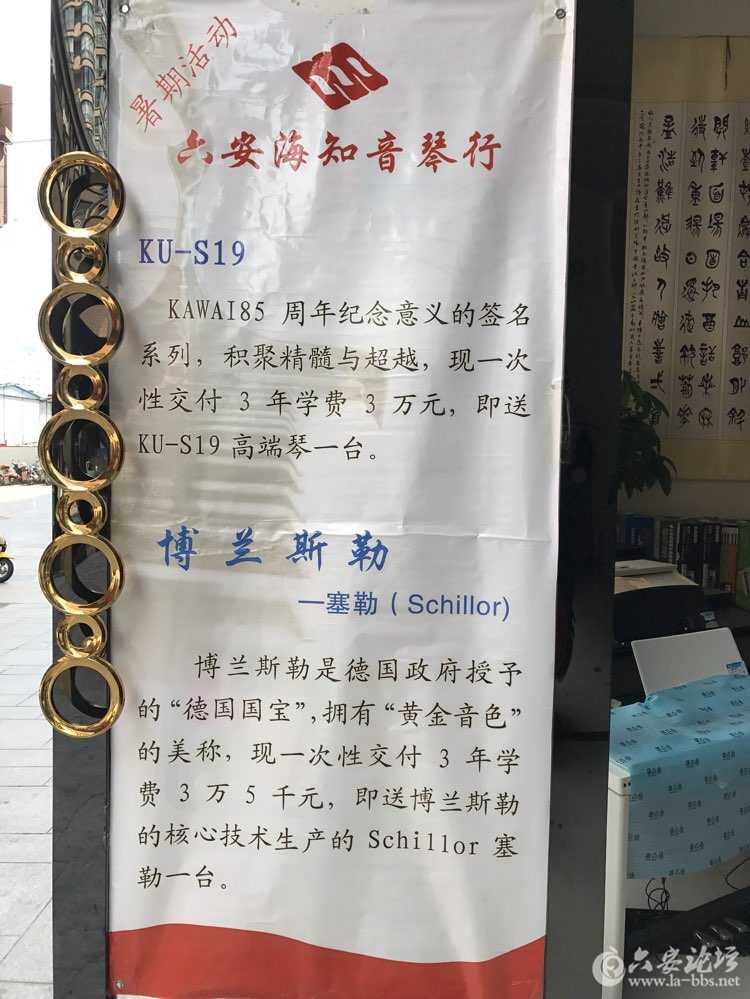 暑期活动
六安海知音琴行
KU-S19
KAWAI85 周年纪念意义的签名
系列，积聚精髓与超越，现一次
性交付 3 年学费 3 万元，即送
KU-S19 高端琴一台。
博兰斯勒
—塞勒（Schillor)
博兰斯勒是德国政府授予
的“德国国宝”，拥有“黄金音色”
的美称，现一次性交付 3 年学
费 3 万 5 千元，即送博兰斯勒
的核心技术生产的 Schillor 塞
勒一台。
六安论坛
www.la-bbs.net